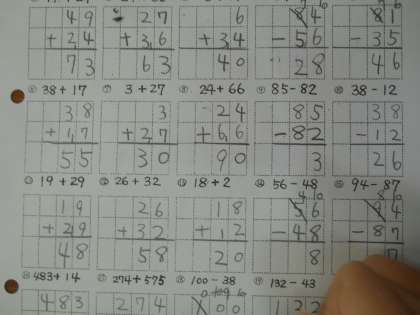 49 27 6 84 81
+24 +36 +34 -56 -35
73 63 40 28 46
⑥ 38+17 ⑦ 3+27 ⑧ 24+66 ⑨ 85-82 ⑩ 38-12
38 3 24 85 38
+17 +27 +66 -82 -12
55 30 90 3 26
⑪ 19+29 ⑫ 26+32 ⑬ 18+2 ⑭ 56-48 ⑮ 94-87
19 26 18 56 94
+29 +32 +12 -48 -87
48 58 20 8 7
⑯ 483+14 ⑰ 274+575 ⑱ 100-38 ⑲ 132-43
483 274 100